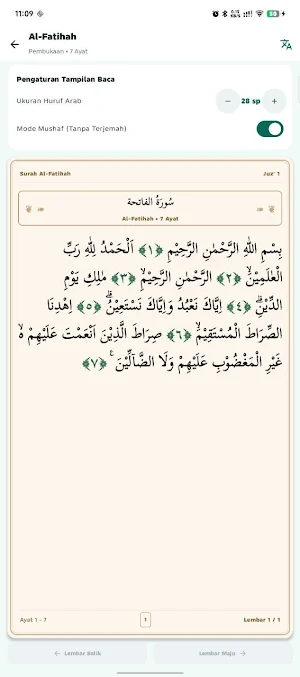 11:09
Al-Fatihah
Pembukaan • 7 Ayat
Pengaturan Tampilan Baca
Ukuran Huruf Arab
− 28 sp +
Mode Mushaf (Tanpa Terjemah)
Surah Al-Fatihah
Juz' 1
سُورَةُ الفاتحة
Al-Fatihah • 7 Ayat
بِسْمِ اللّٰهِ الرَّحْمٰنِ الرَّحِيْمِ ﴿١﴾ اَلْحَمْدُ لِلّٰهِ رَبِّ
الْعٰلَمِيْنَۙ ﴿٢﴾ الرَّحْمٰنِ الرَّحِيْمِۙ ﴿٣﴾ مٰلِكِ يَوْمِ
الدِّيْنِۗ ﴿٤﴾ اِيَّاكَ نَعْبُدُ وَاِيَّاكَ نَسْتَعِيْنُۗ ﴿٥﴾ اِهْدِنَا
الصِّرَاطَ الْمُسْتَقِيْمَۙ ﴿٦﴾ صِرَاطَ الَّذِيْنَ اَنْعَمْتَ عَلَيْهِمْ ەۙ
غَيْرِ الْمَغْضُوْبِ عَلَيْهِمْ وَلَا الضَّاۤلِّيْنَ ࣖ ﴿٧﴾
Ayat 1 - 7
1
Lembar 1 / 1
← Lembar Balik
Lembar Maju →